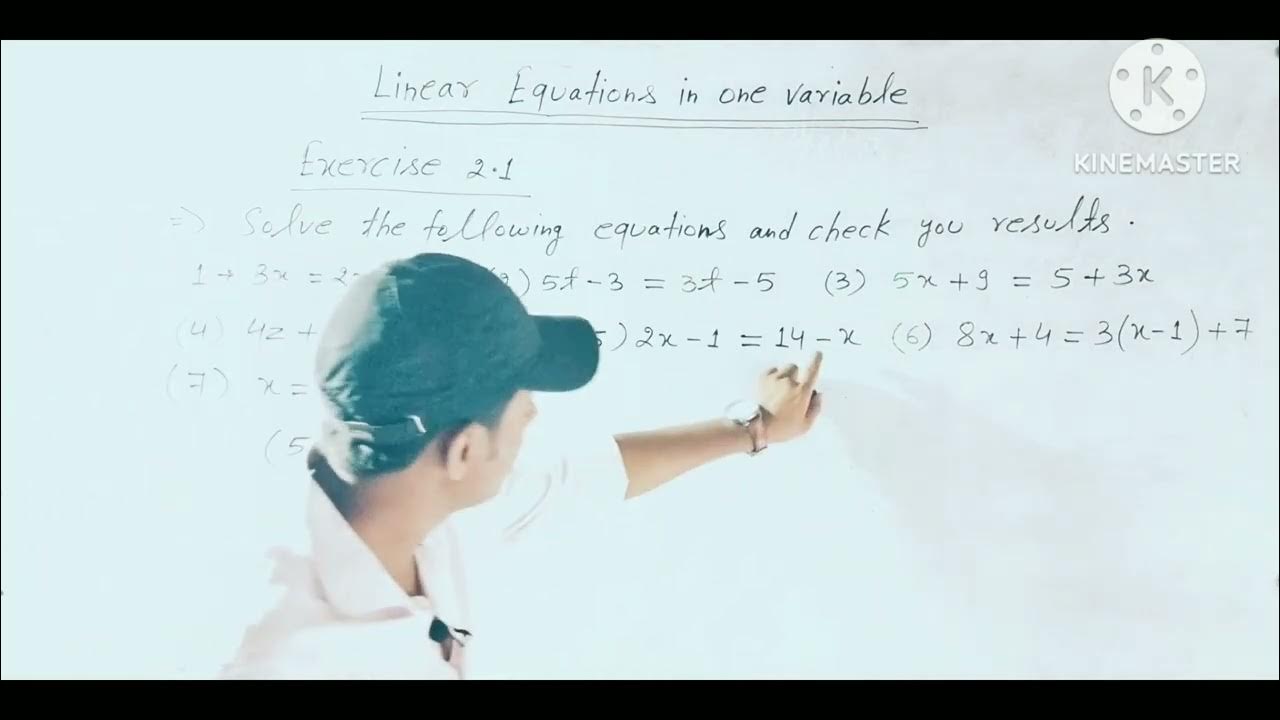 Linear Equations in one variable
K
KINEMASTER
Exercise 2.1
=> Solve the following equations and check you results.
1 → 3x = 2 ) 5t - 3 = 3t - 5 (3) 5x + 9 = 5 + 3x
(4) 4z + ) 2x - 1 = 14 - x (6) 8x + 4 = 3(x-1) + 7
(7) x =
(5